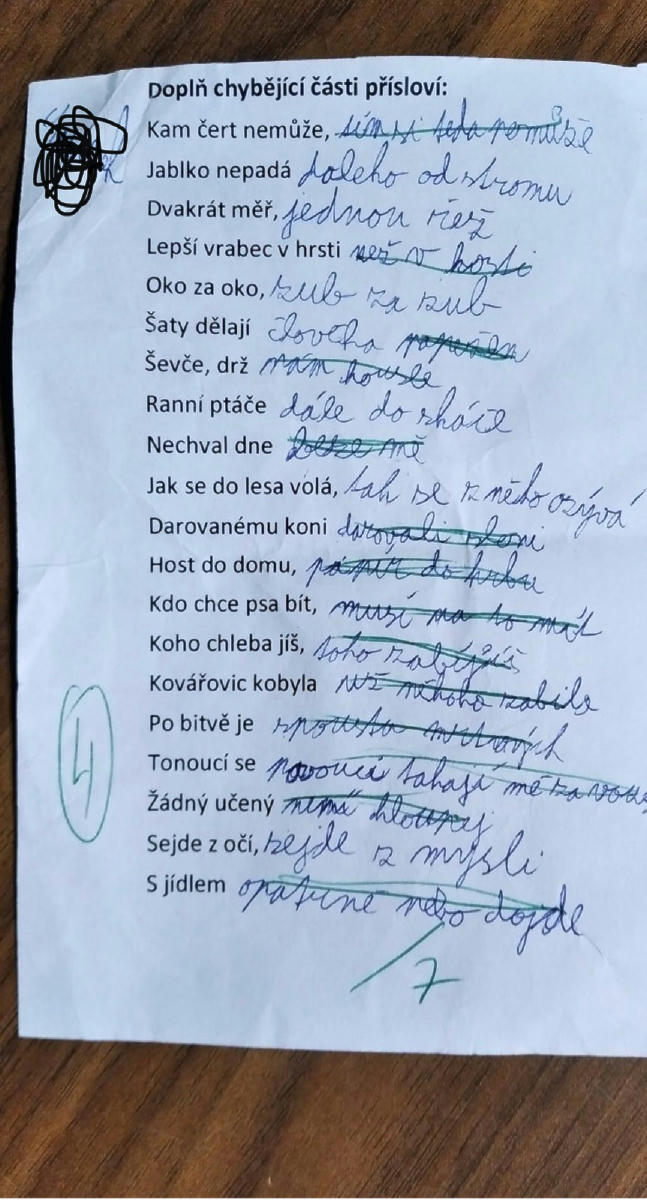 Doplň chybějící části přísloví:
Kam čert nemůže, tím si teda nemůže
Jablko nepadá daleko od stromu
Dvakrát měř, jednou řež
Lepší vrabec v hrsti než v kosti
Oko za oko, zub za zub
Šaty dělají človeka
Ševče, drž mám housle
Ranní ptáče dále do skáče
Nechval dne beze mě
Jak se do lesa volá, tak se z něho ozývá
Darovanému koni darovali sloni
Host do domu, papír do hrbu
Kdo chce psa bít, musí na to mít
Koho chleba jíš, toho zabíjíš
Kovářovic kobyla už někoho zabila
Po bitvě je spousta mrtvých
Tonoucí se novoucí tahají mě za
Žádný učený nimá hloupej
Sejde z očí, sejde z mysli
S jídlem opatrně nebo dojde
4
/7